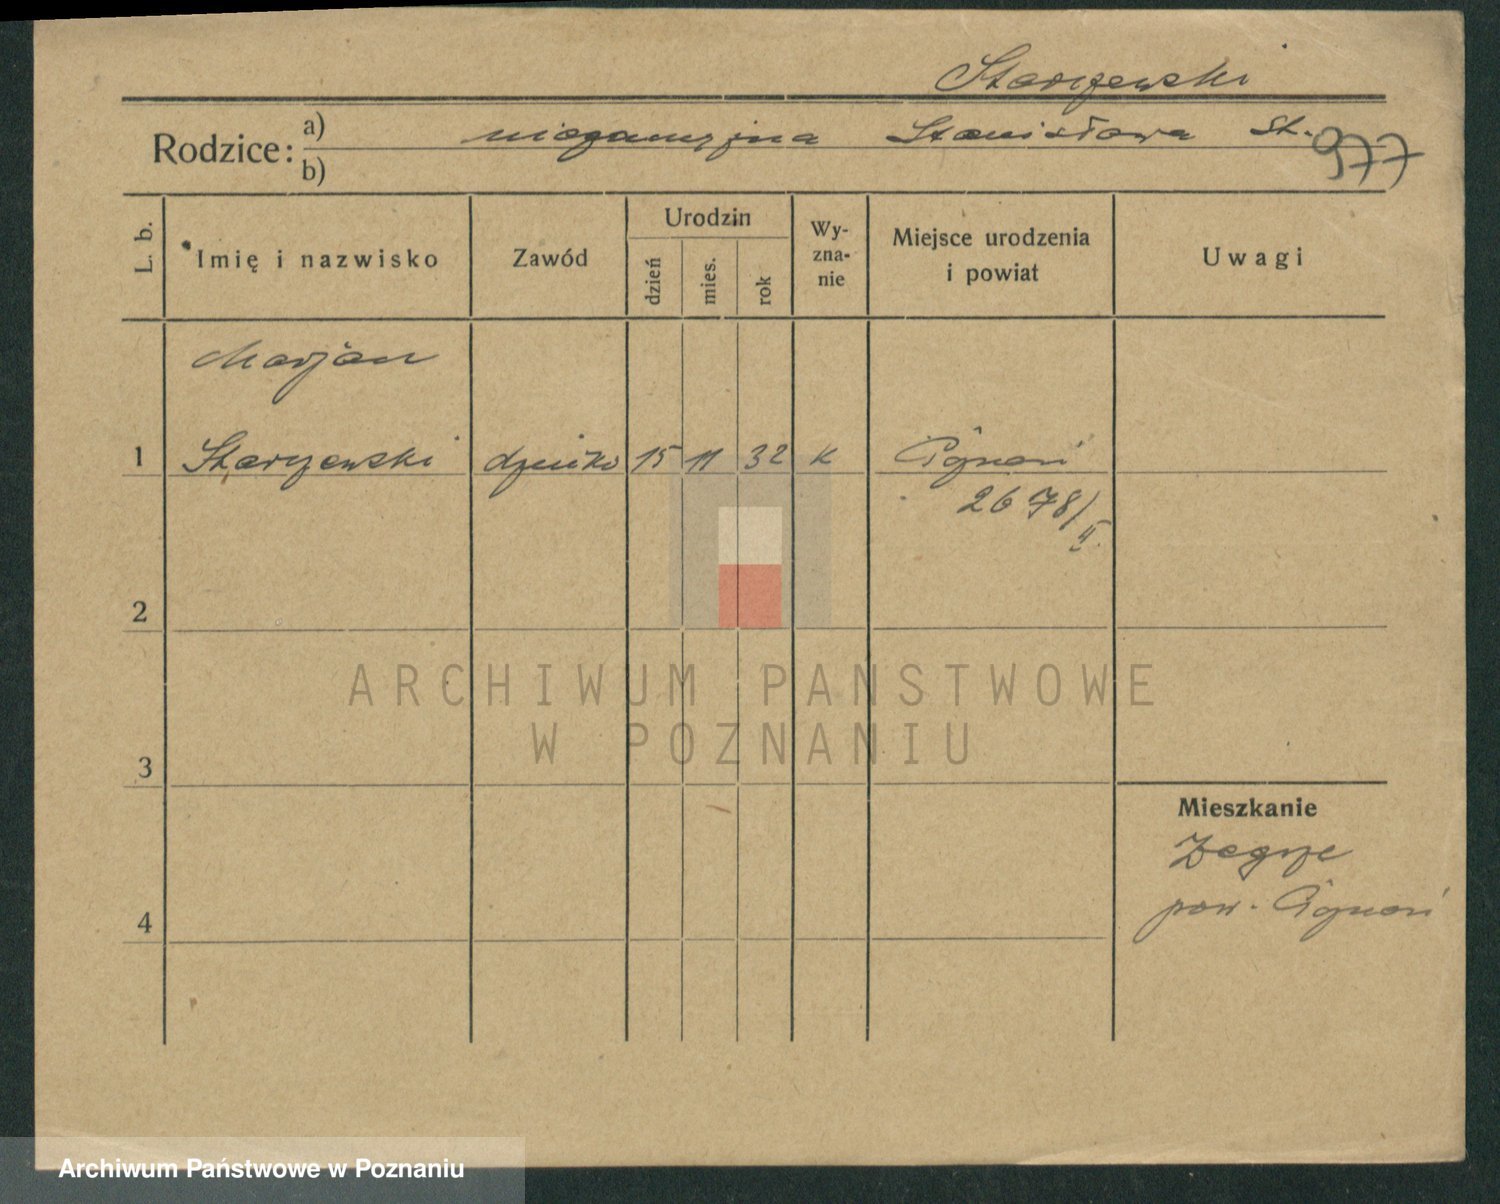 Starzewski
Rodzice: a) niezamężna Stanisława St.
b)
977
L. b.
Imię i nazwisko
Zawód
Urodzin
dzień
mies.
rok
Wy-
zna-
nie
Miejsce urodzenia
i powiat
Uwagi
Marjan
1 Starzewski dziecko 15 11 32 K Poznań
2678/II.
2
3
4
Mieszkanie
Zegrze
pow. Poznań
ARCHIWUM PANSTWOWE
W POZNANIU
Archiwum Państwowe w Poznaniu